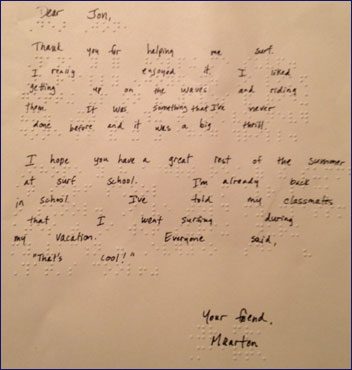 Dear Jon,
Thank you for helping me surf.
I really enjoyed it. I liked
getting up on the waves and riding
them. It was something that I've never
done before and it was a big thrill.
I hope you have a great rest of the summer
at surf school. I'm already back
in school. I've told my classmates
that I went surfing during
my vacation. Everyone said,
"That's cool!"
Your friend,